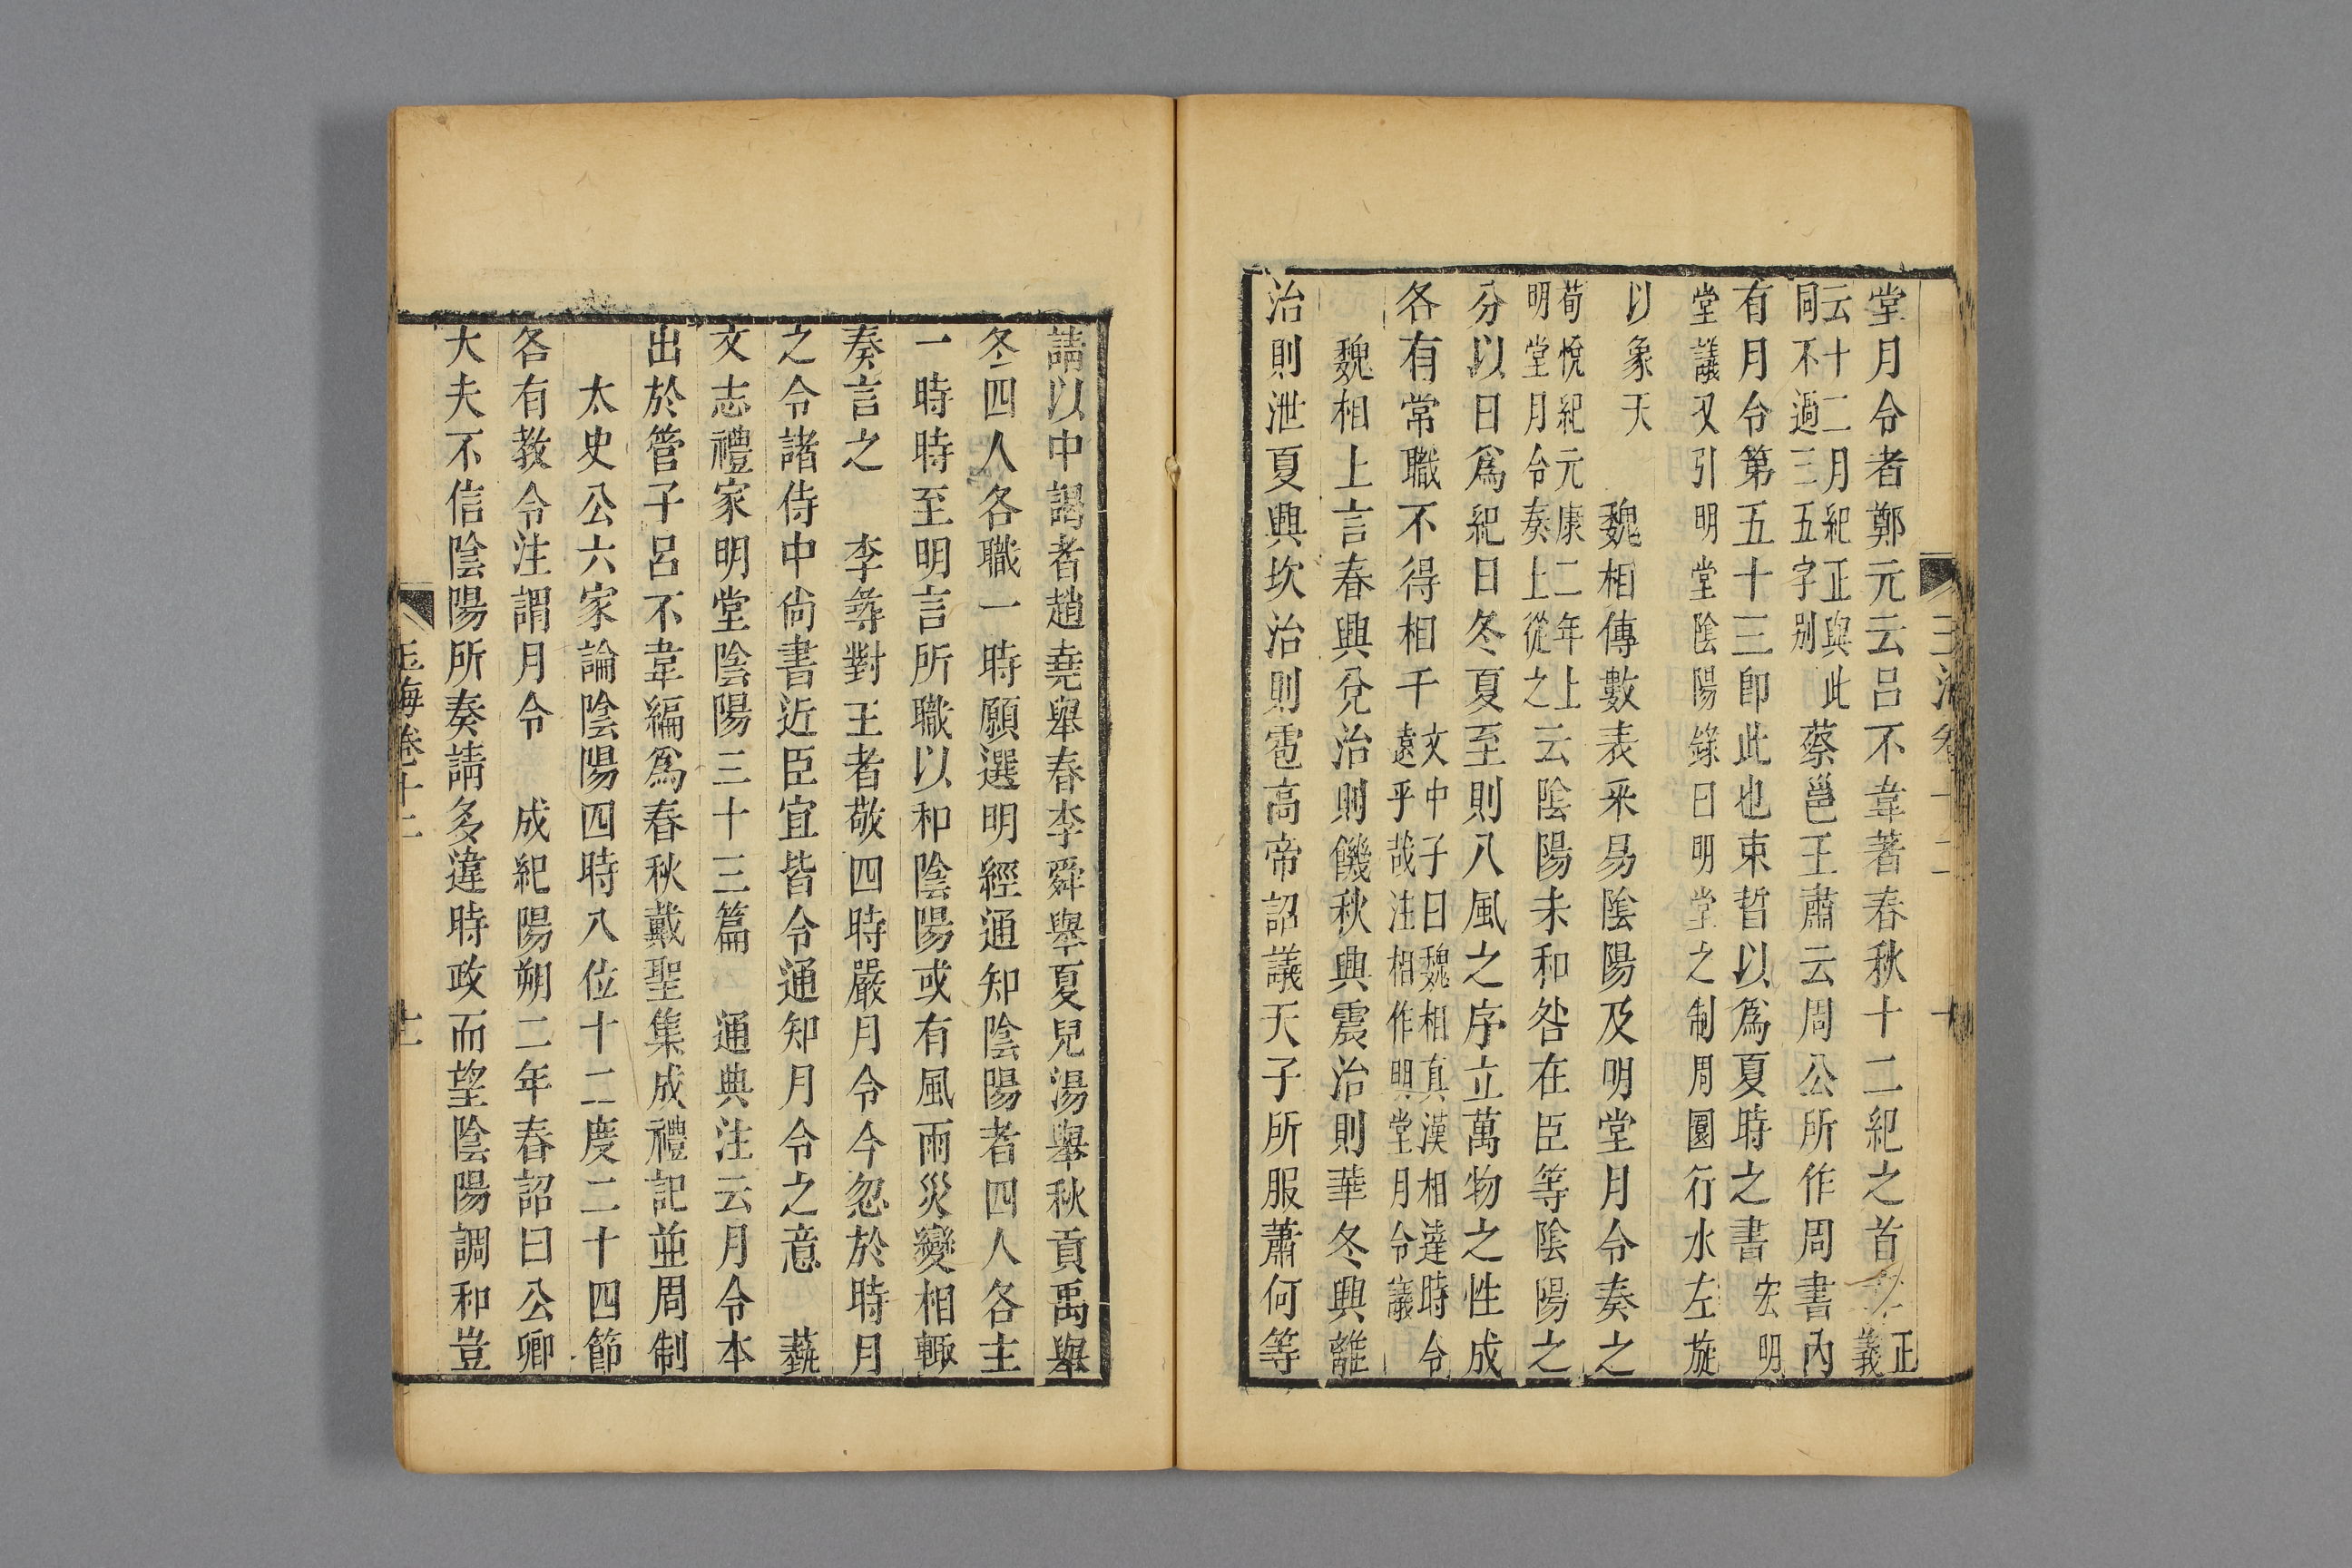 堂月令者鄭元云呂不韋著春秋十二紀之首 正義
云十二月紀正與此同不過三五字別 蔡邕王肅云周公所作周書內
有月令第五十三即此也束晳以爲夏時之書 宏明
堂議又引明堂陰陽錄曰明堂之制周圜行水左旋
以象天 魏相傳數表采易陰陽及明堂月令奏之
荀悅紀元康二年上明堂月令奏上從之 云陰陽未和咎在臣等陰陽之
分以日爲紀日冬夏至則八風之序立萬物之性成
各有常職不得相干 文中子曰魏相真漢相達時令遠乎哉注相作明堂月令議
魏相上言春興兌治則饑秋興震治則華冬興離
治則泄夏興坎治則雹高帝詔議天子所服蕭何等
十
請以中謁者趙堯舉春李舜舉夏兒湯舉秋貢禹舉
冬四人各職一時願選明經通知陰陽者四人各主
一時時至明言所職以和陰陽或有風雨災變相輒
奏言之 李尋對王者敬四時嚴月令今忽於時月
之令諸侍中尚書近臣宜皆令通知月令之意 藝
文志禮家明堂陰陽三十三篇 通典注云月令本
出於管子呂不韋編爲春秋戴聖集成禮記並周制
太史公六家論陰陽四時八位十二度二十四節
各有教令注謂月令 成紀陽朔二年春詔曰公卿
大夫不信陰陽所奏請多違時政而望陰陽調和豈
玉海卷十二 十一